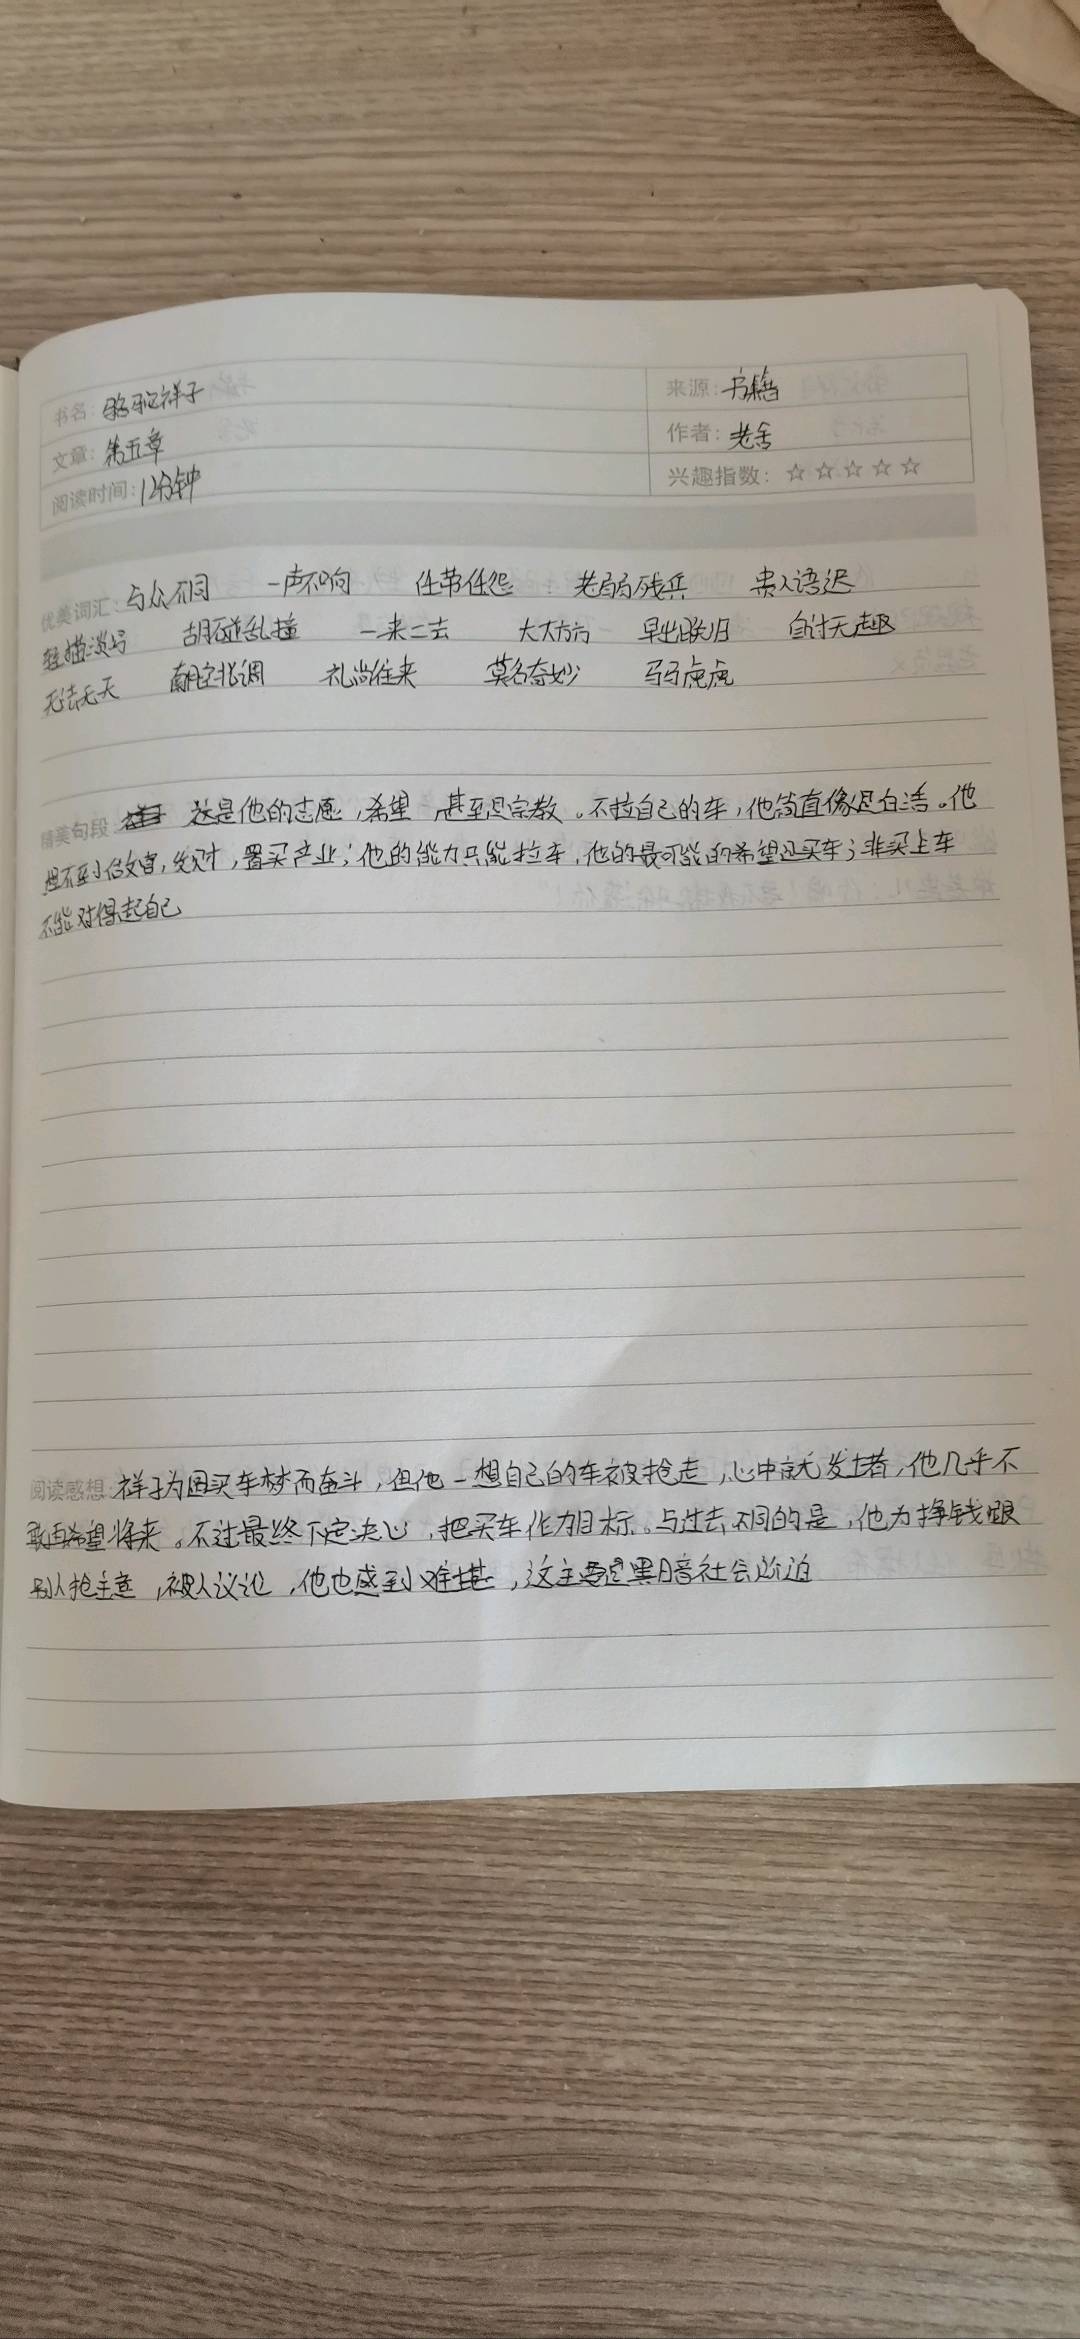 书名：骆驼祥子 来源：书籍
文章：第五章 作者：老舍
阅读时间：12分钟 兴趣指数：☆☆☆☆☆
优美词汇：与众不同 一声不响 任劳任怨 老弱残兵 贵人语迟
轻描淡写 胡碰乱撞 一来二去 大大方方 早出晚归 自讨无趣
无法无天 南腔北调 礼尚往来 莫名奇妙 马马虎虎
精美句段 这是他的志愿，希望，甚至是宗教。不拉自己的车，他简直像是白活。他
想不到作官，发财，置买产业；他的能力只能拉车，他的最可能的希望是买车；非买上车
不能对得起自己
阅读感想：祥子为因买车梦而奋斗，但他一想自己的车被抢走，心中就发堵，他几乎不
敢再希望将来。不过最终下定决心，把买车作为目标。与过去不同的是，他为挣钱跟
别人抢主意，被人议论，他也感到难堪，这主要是黑暗社会所迫